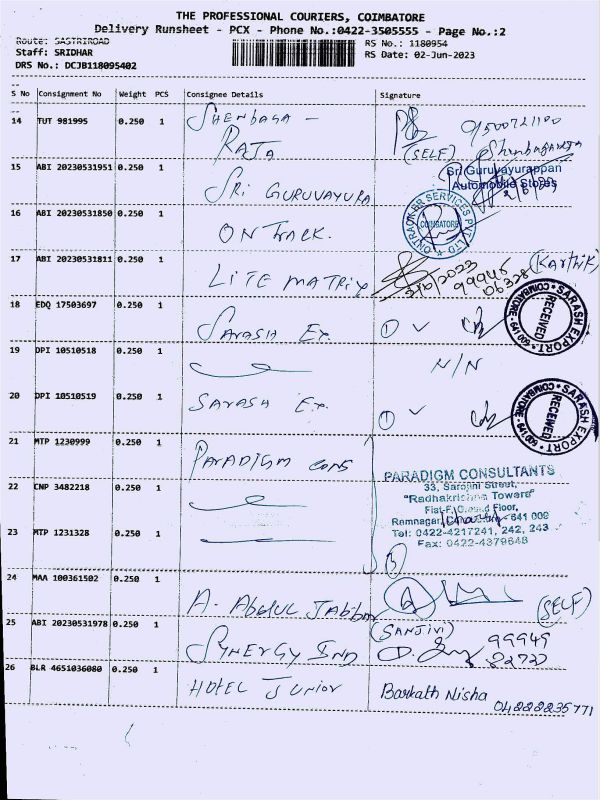 THE PROFESSIONAL COURIERS, COIMBATORE
Delivery Runsheet - PCX - Phone No.:0422-3505555 - Page No.:2
Route: SASTRIROAD
RS No.: 1180954
Staff: SRIDHAR
RS Date: 02-Jun-2023
DRS No.: DCJB118095402
S No Consignment No Weight PCS Consignee Details Signature
14 TUT 981995 0.250 1 SHENbAGA - RAJA 9500721100
(SELF) Shenbagaraja
15 ABI 20230531951 0.250 1 SRI GURUVAYURA Sri Guruvayurappan
Automobile Stores
16 ABI 20230531850 0.250 1 ON TRACK. ONTRACK HR SERVICES PVT LTD COIMBATORE
17 ABI 20230531811 0.250 1 LITE MATRIX 2/6/2023 99946 06328 (KARTHIK)
18 EDQ 17503697 0.250 1 SARASH Ex. 1 SARASH EXPORT RECEIVED COIMBATORE - 641 009
19 DPI 10510518 0.250 1 N/N
20 DPI 10510519 0.250 1 SARASH Ex. 1 SARASH EXPORT RECEIVED COIMBATORE - 641 009
21 MTP 1230999 0.250 1 PARADIGM CONS PARADIGM CONSULTANTS
33, Sarojini Street,
"Radhakrishna Towers"
22 CNP 3482218 0.250 1 Floor,
Ramnagar, - 641 009
23 MTP 1231328 0.250 1 Tel: 0422-4217241, 242, 243
Fax: 0422-4379648
3
24 MAA 100361502 0.250 1 A. ABdUL JABbAR (SELF)
25 ABI 20230531978 0.250 1 SYNERGY IND (SANJIVI) 99949
82727
26 BLR 4651036080 0.250 1 HOTEL JUNIOR Barkath Nisha
04888835771